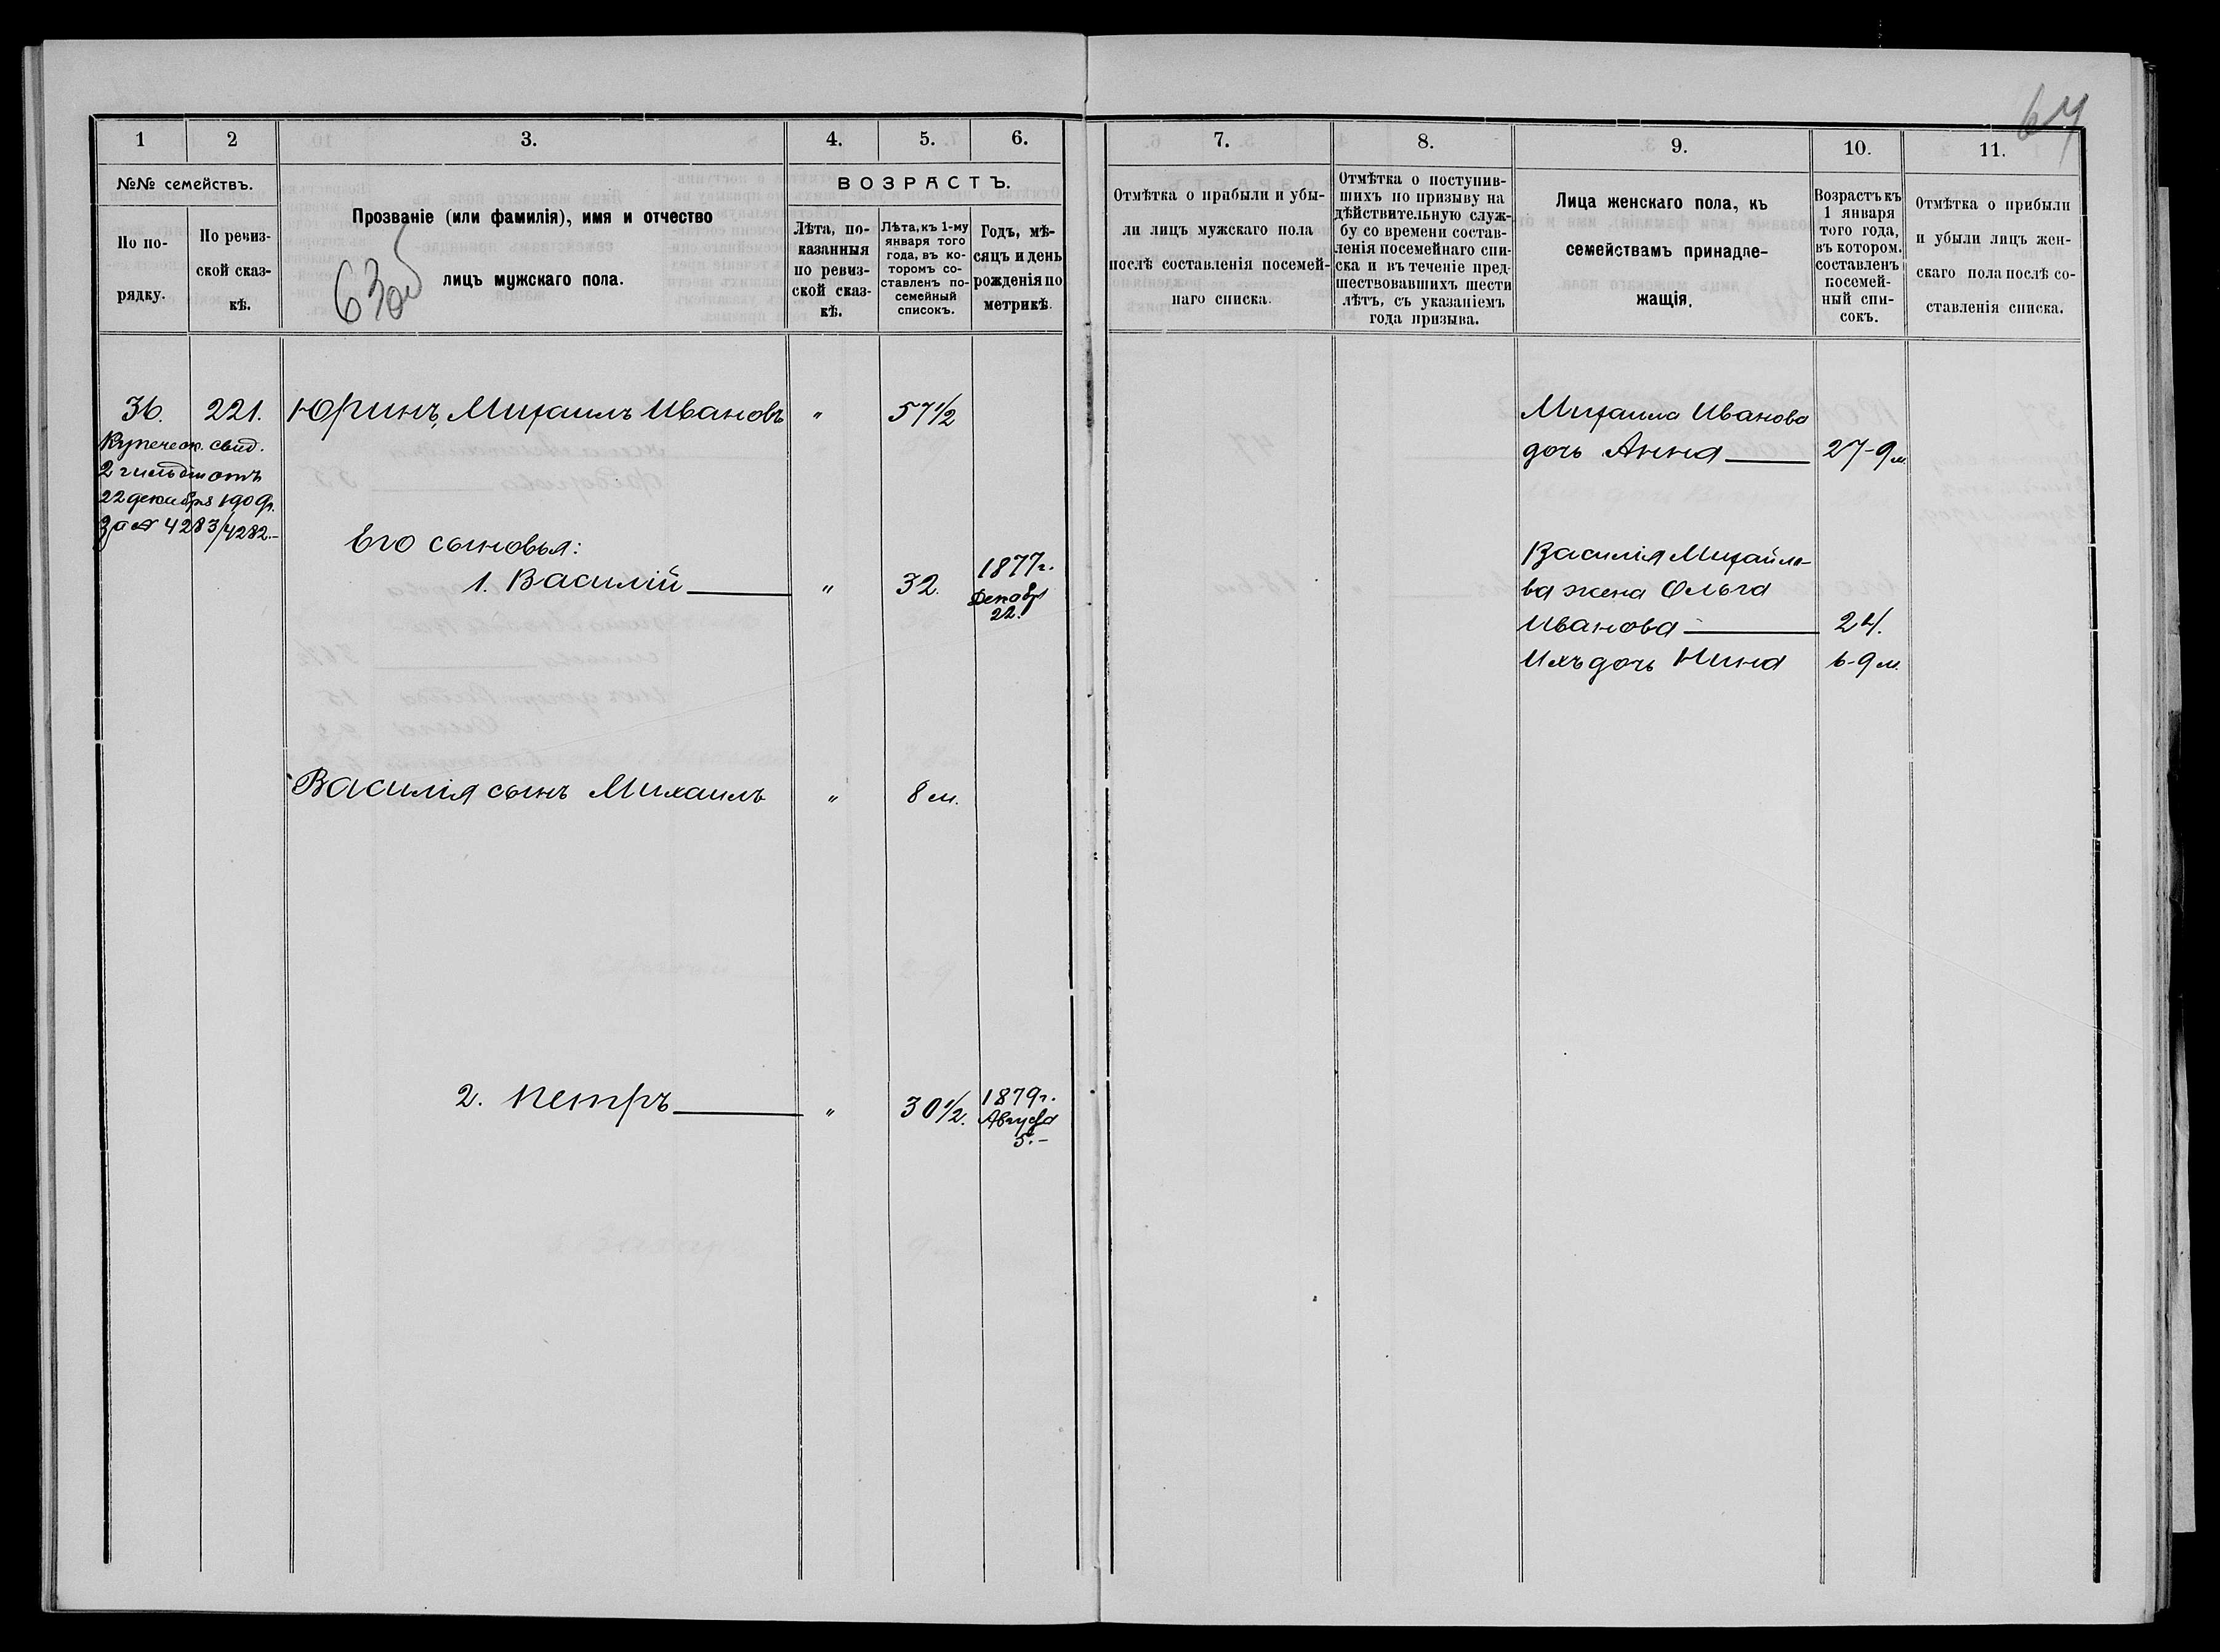 64
1
2
3.
4.
5.
6.
№№ семействъ.
По по-
рядку.
По ревиз-
ской сказ-
кѣ.
Прозваніе (или фамилія), имя и отчество
лицъ мужскаго пола.
63об
ВОЗРАСТЪ.
Лѣта, по-
казанныя
по ревиз-
ской сказ-
кѣ.
Лѣта, къ 1-му
января того
года, въ ко-
торомъ со-
ставленъ по-
семейный
списокъ.
Годъ, мѣ-
сяцъ и день
рожденія по
метрикѣ.
36. 221. Юринъ, Михаилъ Ивановъ " 57½
Купеческ. свид.
2 гильдіи отъ
22 декабря 1909г.
За № 4283/4282.-
Его сыновья:
1. Василій " 32. 1877г.
Декабр
22.
Василія сынъ Михаилъ " 8 м.
2. Петръ " 30½. 1879г.
Августа
5.-
7.
8.
9.
10.
11.
Отмѣтка о прибыли и убы-
ли лицъ мужскаго пола
послѣ составленія посемей-
наго списка.
Отмѣтка о поступив-
шихъ по призыву на
дѣйствительную служ-
бу со времени состав-
ленія посемейнаго спи-
ска и въ теченіе пред-
шествовавшихъ шести
лѣтъ, съ указаніемъ
года призыва.
Лица женскаго пола, къ
семействамъ принадле-
жащія.
Возрастъ къ
1 января
того года,
въ котором.
составленъ
посемей-
ный спи-
сокъ.
Отмѣтка о прибыли
и убыли лицъ жен-
скаго пола послѣ со-
ставленія списка.
Михаила Иванова
дочь Анна 27-9 м.
Василія Михайло-
ва жена Ольга
Иванова 24.
Ихъ дочь Нина 6-9 м.